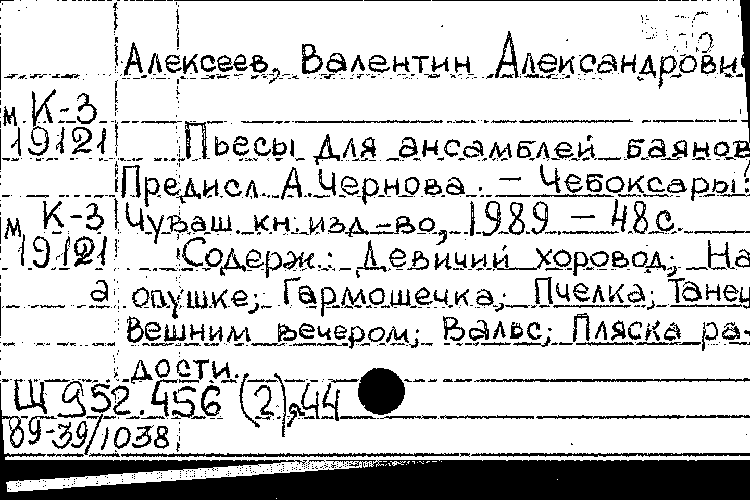 Алексеев, Валентин Александрови
м К-3
19121
Пьесы для ансамблей баянов
Предисл. А. Чернова. – Чебоксары:
м К-3
19121
а
Чуваш. кн. изд-во, 1989 – 48 с.
Содерж.: Девичий хоровод; На
опушке; Гармошечка; Пчелка; Танец
Вешним вечером; Вальс; Пляска ра-
дости.
Щ 952.456 (2),44
89-39/1038